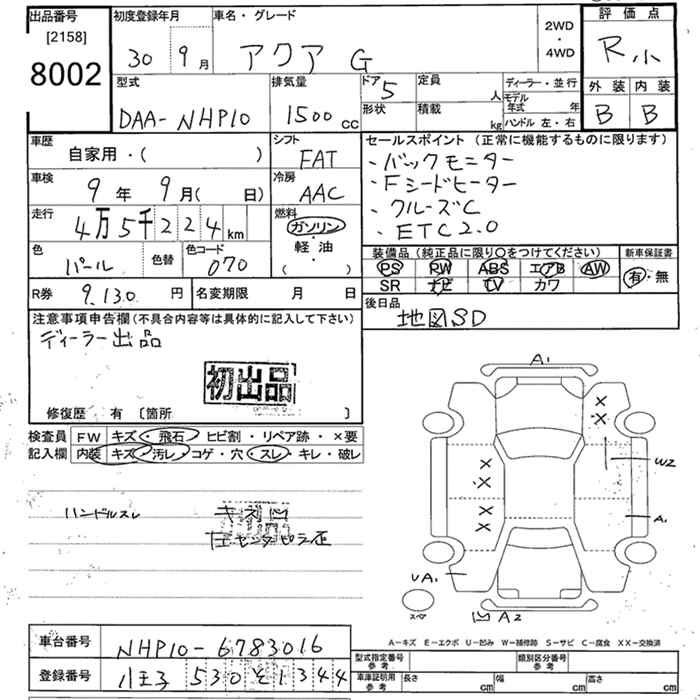 出品番号
[2158]
8002
初度登録年月
30年 9月
車名・グレード
アクア G
2WD
・
4WD
評価点
R小
外装 内装
B B
型式
DAA-NHP10
排気量
1500 cc
ドア 5
形状
定員 人
積載 kg
ディーラー・並行
モデル年式 年
ハンドル 左・右
車歴
自家用・( )
シフト
FAT
車検
9年 9月( 日)
冷房
AAC
走行
4万5千224km
燃料
ガソリン
・
軽油
( )
色
パール
色替
色コード
070
R券 9,130 円
名変期限 月 日
セールスポイント(正常に機能するものに限ります)
・バックモニター
・Fシートヒーター
・クルーズC
・ETC2.0
装備品(純正品に限り○をつけてください)
PS PW ABS エアB AW
SR ナビ TV カワ
新車保証書
有・無
後日品
地図SD
注意事項申告欄(不具合内容等は具体的に記入して下さい)
ディーラー出品
初出品
修復歴 有 〔箇所 〕
検査員記入欄
FW キズ・飛石・ヒビ割・リペア跡・×要
内装 キズ・汚レ・コゲ・穴・スレ・キレ・破レ
ハンドルスレ
センタピラー
A1
W2
A1
UA1
スペア
A2
A-キズ E-エクボ U-凹み W-補修跡 S-サビ C-腐食 XX-交換済
車台番号 NHP10-6783016
登録番号 八王子 530 そ 1344
型式指定番号 参考
類別区分番号 参考
車庫証明用 参考 長さ cm 幅 cm 高さ cm